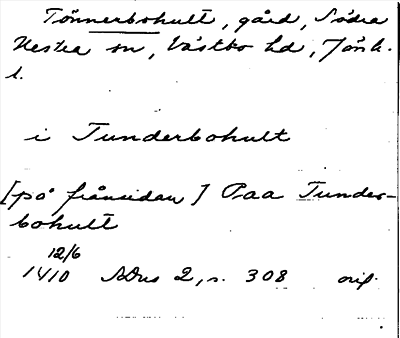 Tönnerbohult, gård, Södra
Hestra sn, Västbo hd, Jönk.
l.
i Tunderbohult
[på frånsidan] Paa Tunder-
bohult
12/6
1410 SDns 2, s. 308 orig.